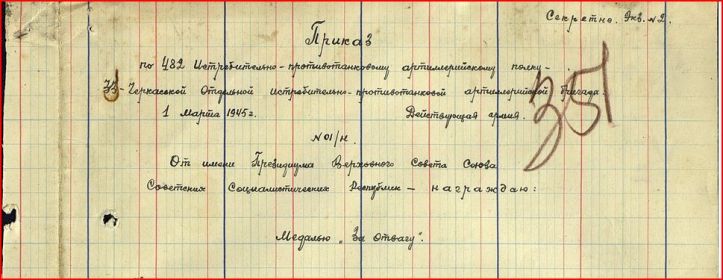 Секретно. Экз. №2.
Приказ
по 482 Истребительно-противотанковому артиллерийскому полку-
33-Черкасской Отдельной истребительно-противотанковой артиллерийской бригады.
1 Марта 1945г. Действующая армия.
№01/н.
351
От имени Президиума Верховного Совета Союза
Советских Социалистических Республик – награждаю:
Медалью „За отвагу“.